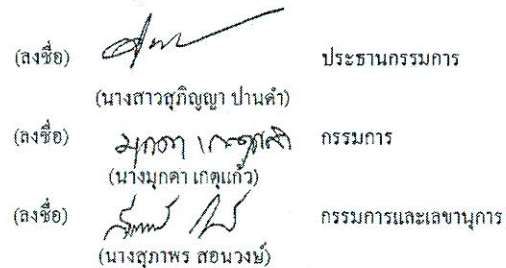 (ลงชื่อ) ประธานกรรมการ
(นางสาวสุภิญญา ปานดำ)
(ลงชื่อ) มุกดา เกตุแก้ว กรรมการ
(นางมุกดา เกตุแก้ว)
(ลงชื่อ) กรรมการและเลขานุการ
(นางสุภาพร สอนวงษ์)